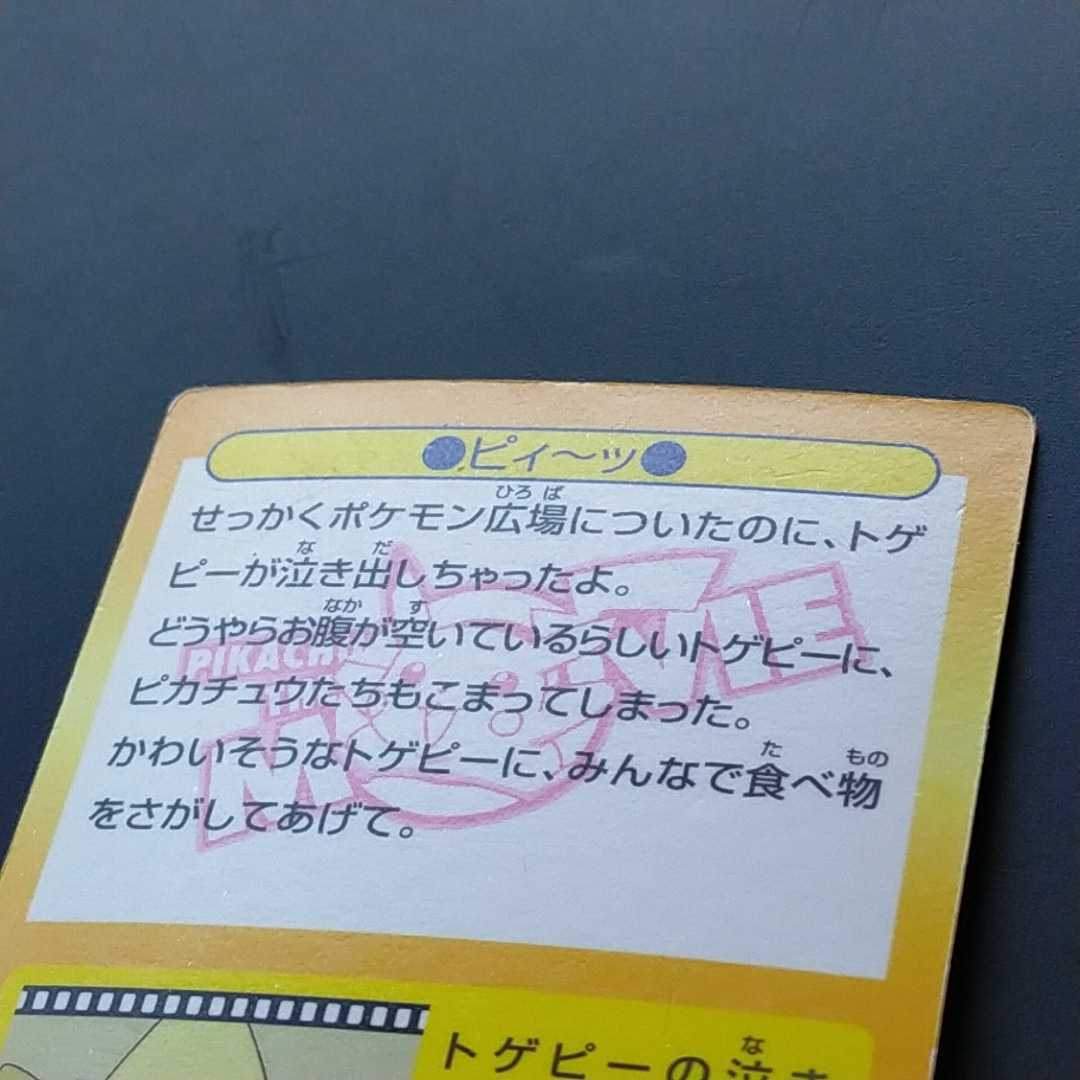 ●ピィ〜ッ●
せっかくポケモン広場についたのに、トゲ
ピーが泣き出しちゃったよ。
どうやらお腹が空いているらしいトゲピーに、
ピカチュウたちもこまってしまった。
かわいそうなトゲピーに、みんなで食べ物
をさがしてあげて。
トゲピーの泣き